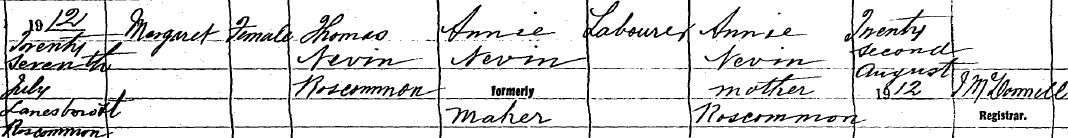 1912
Twenty
Seventh
July
Lanesboro'
Roscommon
Margaret
Female
Thomas
Nevin
Roscommon
Annie
Nevin
formerly
Maher
Labourer
Annie
Nevin
mother
Roscommon
Twenty
Second
August
1912
J McDonnell
Registrar.